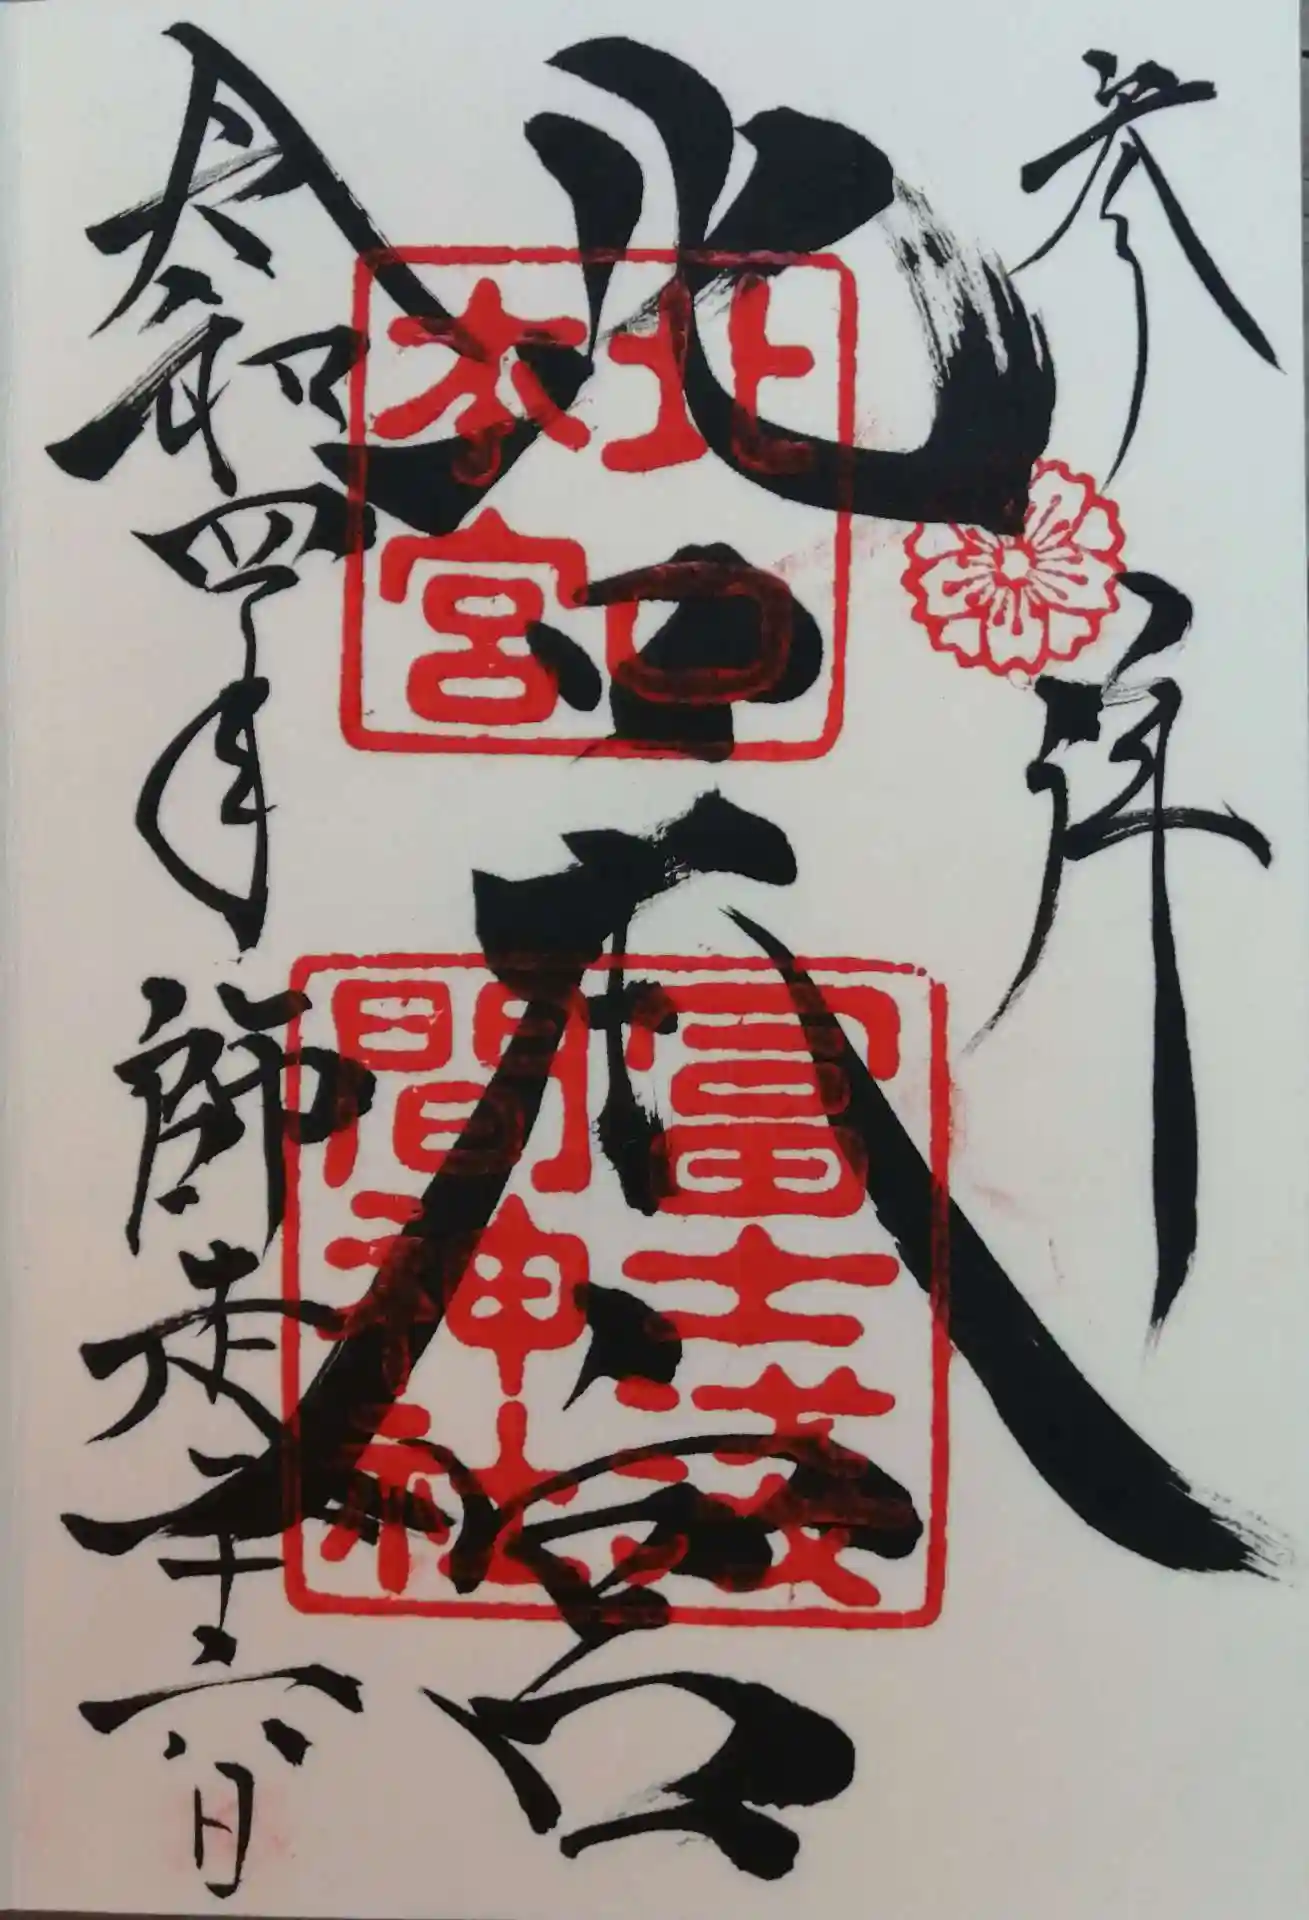 参拝
北口本宮
北口
本宮
冨士淺
間神社
令和四年師走十六日